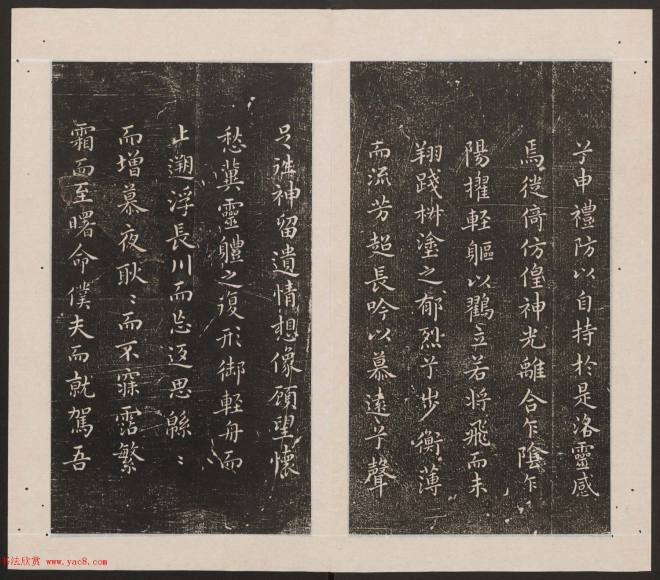 兮申禮防以自持於是洛靈感
焉徙倚仿偟神光離合乍陰乍
陽擢輕軀以鸖立若將飛而未
翔踐椒塗之郁烈兮步衡薄
而流芳超長吟以慕遠兮聲
足往神留遺情想像顧望懷
愁冀靈軆之復形御輕舟而
上遡浮長川而忘返思緜〻
而增慕夜耿〻而不寐霑繁
霜而至曙命僕夫而就駕吾
书法欣赏 www.yac8.com